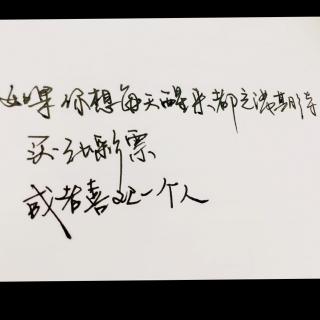 如果你想每天醒来都充满期待
买一张彩票
或者喜欢一个人